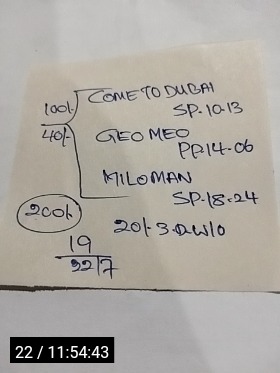 100/- COME TO DUBAI
SP-10-13
40/- GEO MEO
PP.14-06
MILOMAN
SP-18-24
200/-
20/-3.Q.W/0
19
9217
22 / 11:54:43